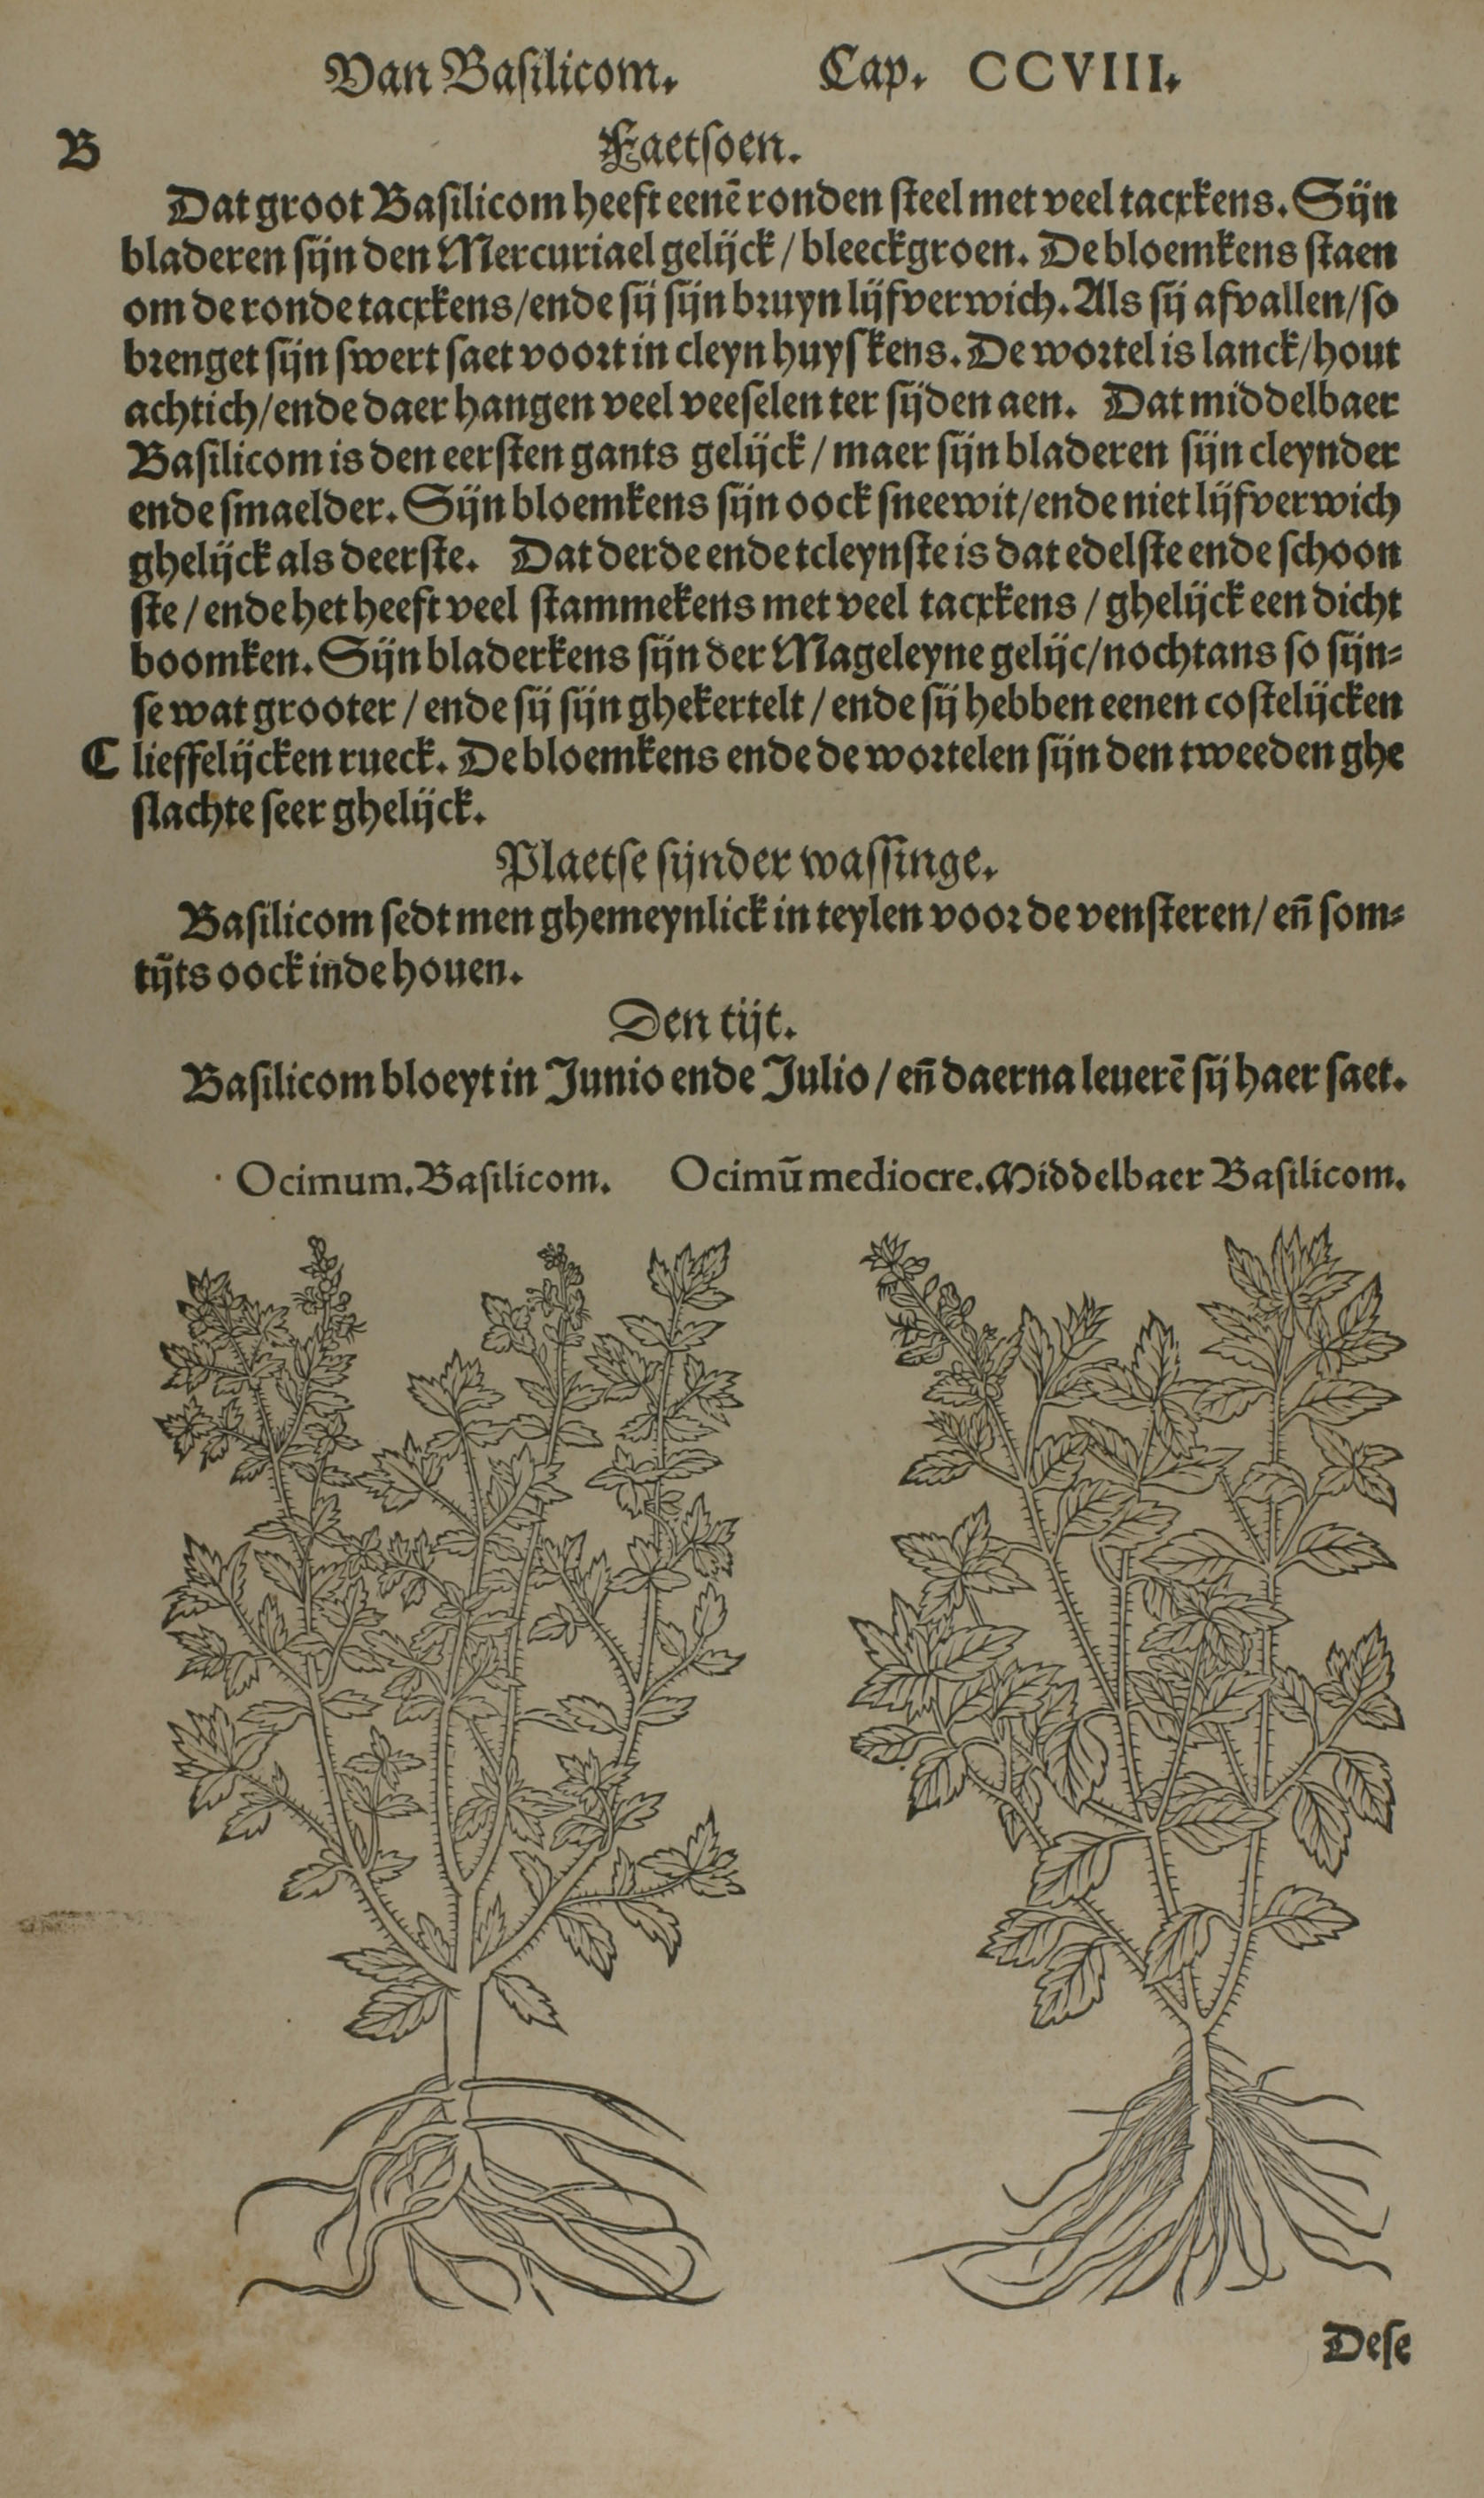 Van Basilicom. Cap. CCVIII.
B Faetsoen.
Dat groot Basilicom heeft eenē ronden steel met veel tacxkens. Sijn
bladeren sijn den Mercuriael gelijck / bleeckgroen. De bloemkens staen
om de ronde tacxkens / ende sij sijn bruyn lijfverwich. Als sij afvallen / so
brenget sijn swert saet voort in cleyn huyskens. De wortel is lanck / hout
achtich / ende daer hangen veel veeselen ter sijden aen. Dat middelbaer
Basilicom is den eersten gants gelijck / maer sijn bladeren sijn cleynder
ende smaelder. Sijn bloemkens sijn oock sneewit / ende niet lijfverwich
ghelijck als deerste. Dat derde ende tcleynste is dat edelste ende schoon
ste / ende het heeft veel stammekens met veel tacxkens / ghelijck een dicht
boomken. Sijn bladerkens sijn der Mageleyne gelijc / nochtans so sijn-
se wat grooter / ende sij sijn ghekertelt / ende sij hebben eenen costelijcken
C lieffelijcken rueck. De bloemkens ende de wortelen sijn den tweeden ghe
slachte seer ghelijck.
Plaetse sijnder wassinge.
Basilicom sedt men ghemeynlick in teylen voor de vensteren / eñ som-
tijts oock in de houen.
Den tijt.
Basilicom bloeyt in Junio ende Julio / eñ daerna leuerē sij haer saet.
Ocimum. Basilicom. Ocimū mediocre. Middelbaer Basilicom.
Dese